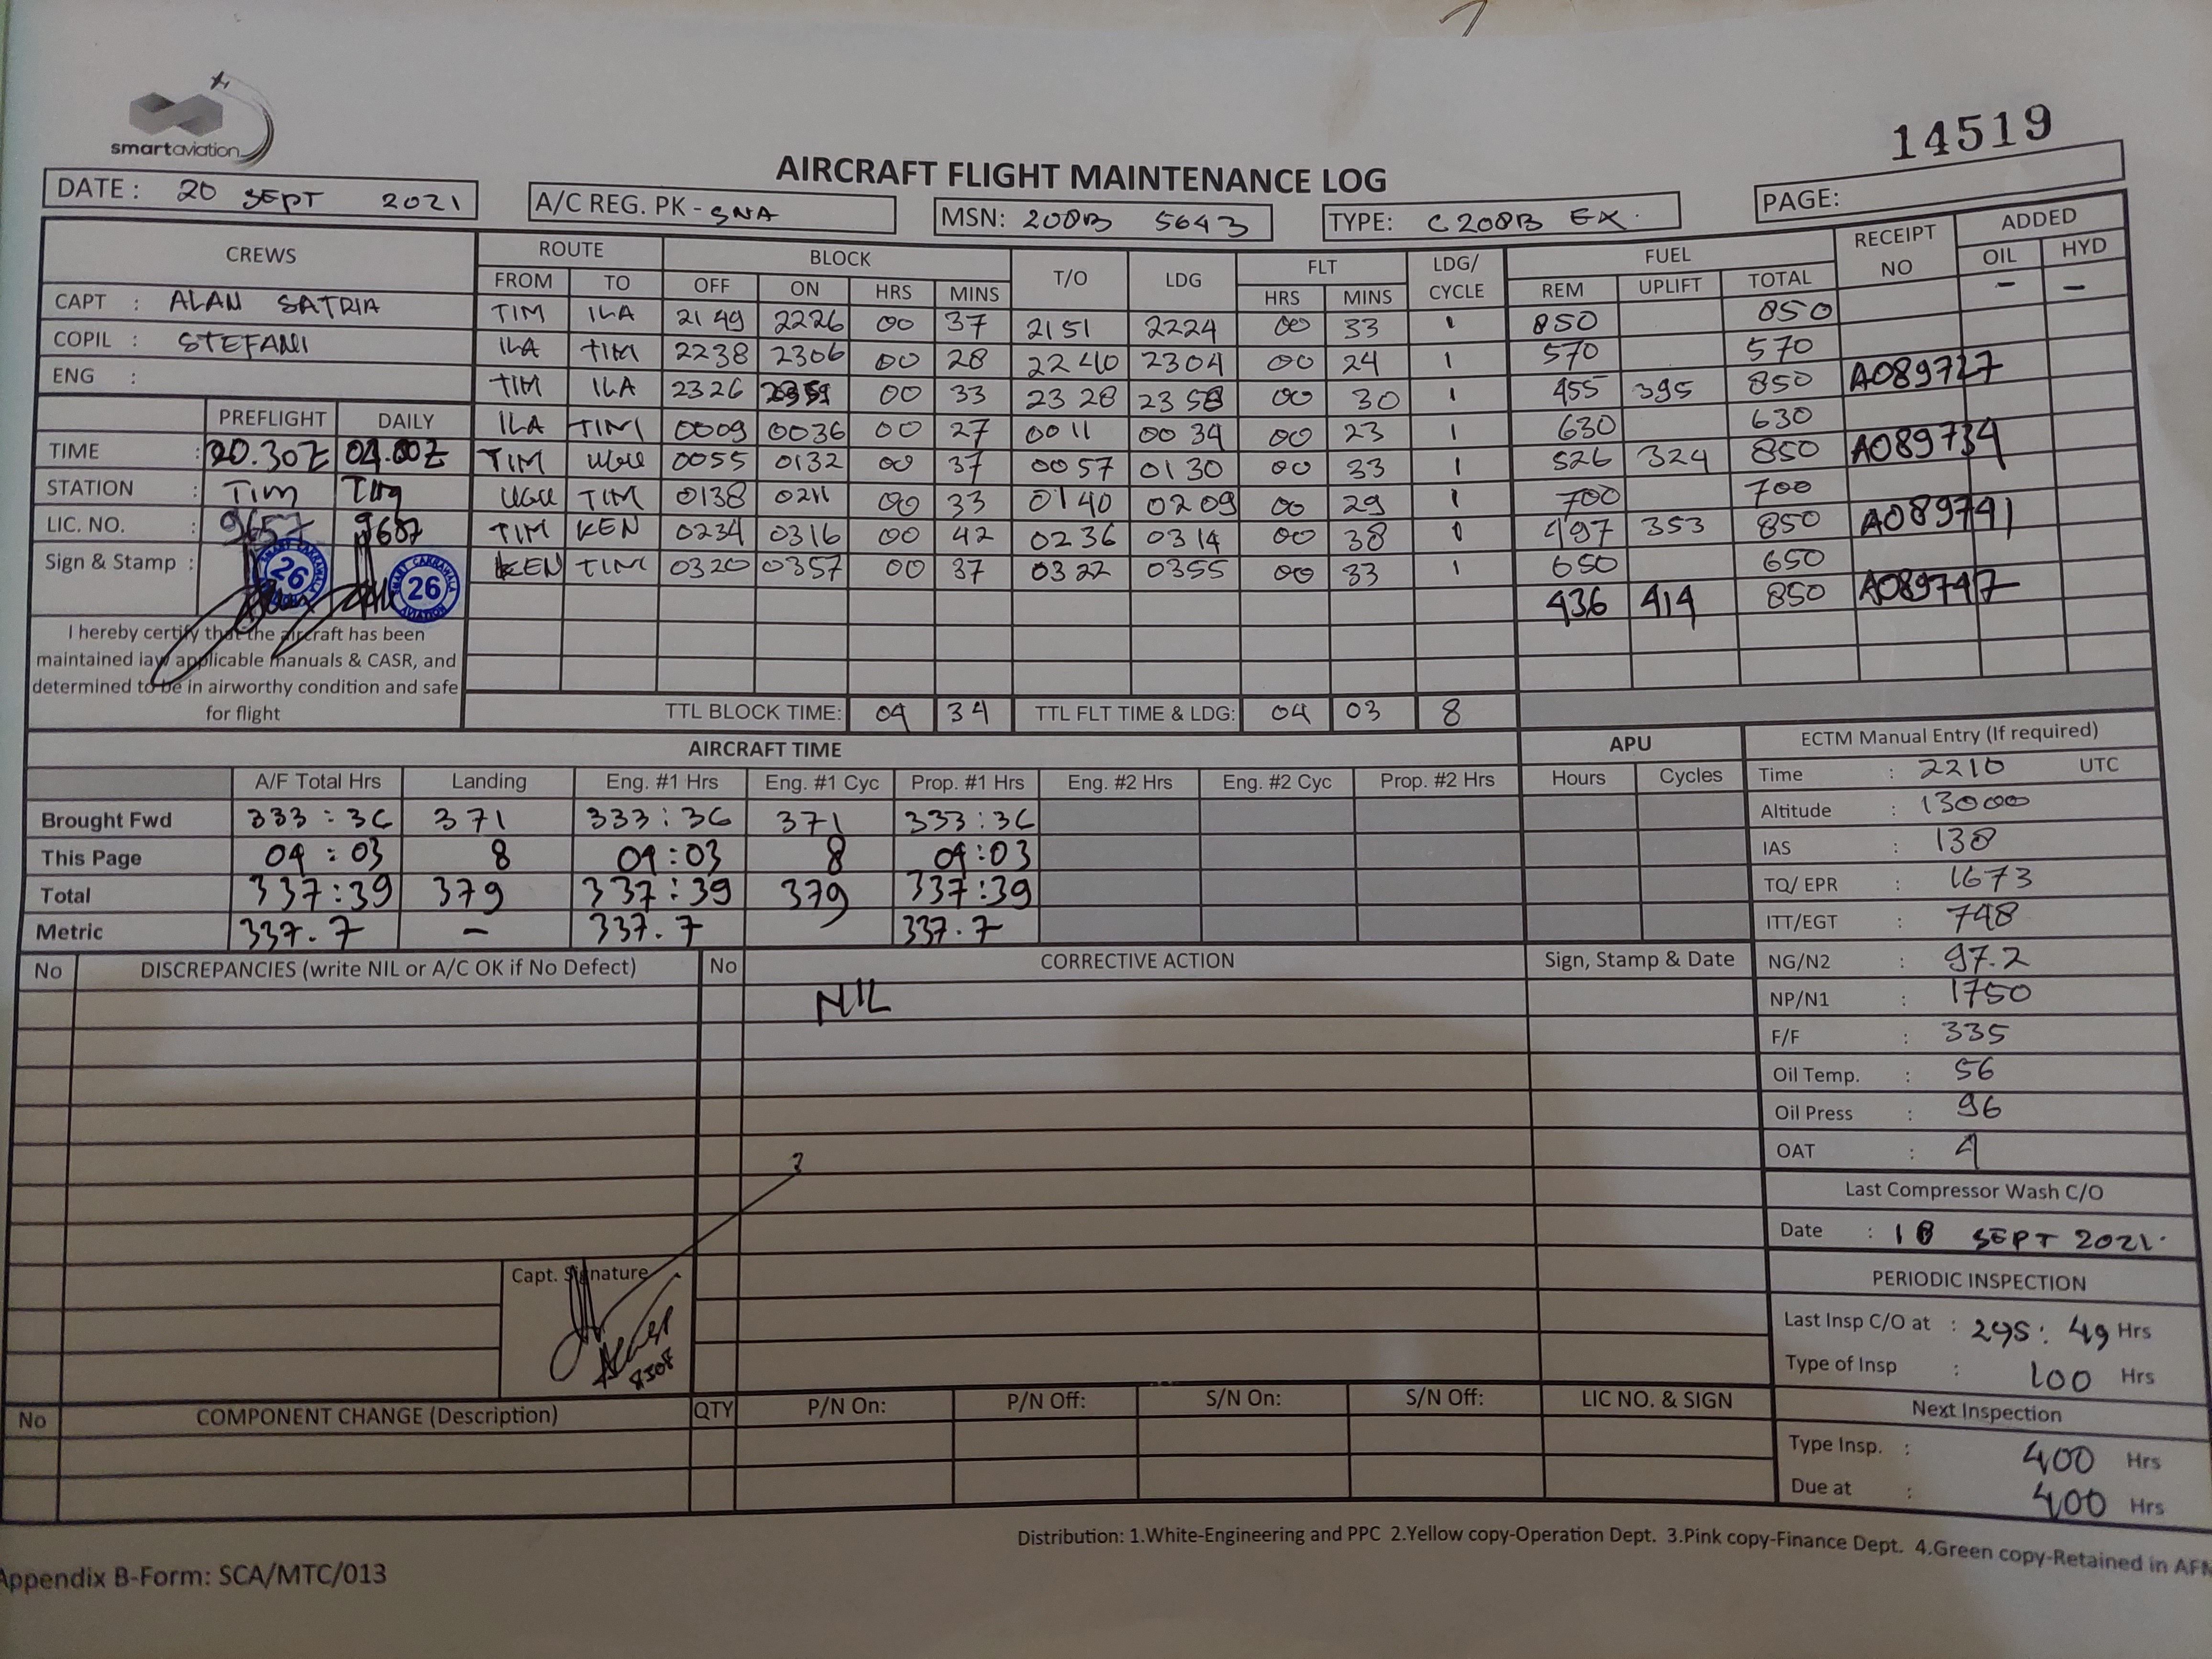 smartaviation
14519
AIRCRAFT FLIGHT MAINTENANCE LOG
DATE : 20 SEPT 2021
A/C REG. PK - SNA
MSN: 200B 5643
TYPE: C 208B EX.
PAGE:
CREWS ROUTE BLOCK T/O LDG FLT LDG/ CYCLE FUEL RECEIPT NO ADDED
FROM TO OFF ON HRS MINS HRS MINS REM UPLIFT TOTAL OIL HYD
CAPT : ALAN SATRIA
COPIL : STEFANI
ENG :
TIM ILA 2149 2226 00 37 2151 2224 00 33 1 850 850 - -
ILA TIM 2238 2306 00 28 2240 2304 00 24 1 570 570
TIM ILA 2326 2359 00 33 2328 2358 00 30 1 455 395 850 A089727
ILA TIM 0009 0036 00 27 0011 0034 00 23 1 630 630
TIM UGU 0055 0132 00 37 0057 0130 00 33 1 526 324 850 A089734
UGU TIM 0138 0211 00 33 0140 0209 00 29 1 700 700
TIM KEN 0234 0316 00 42 0236 0314 00 38 1 497 353 850 A089741
KEN TIM 0320 0357 00 37 0322 0355 00 33 1 650 650
436 414 850 A089747
PREFLIGHT DAILY
TIME : 20.30Z 04.00Z
STATION : Tim Tim
LIC. NO. : 9657 9657
Sign & Stamp :
SMART CAKRAWALA
26
AVIATION
SMART CAKRAWALA
26
AVIATION
I hereby certify that the aircraft has been
maintained iaw applicable manuals & CASR, and
determined to be in airworthy condition and safe
for flight
TTL BLOCK TIME: 04 34 TTL FLT TIME & LDG: 04 03 8
AIRCRAFT TIME APU
A/F Total Hrs Landing Eng. #1 Hrs Eng. #1 Cyc Prop. #1 Hrs Eng. #2 Hrs Eng. #2 Cyc Prop. #2 Hrs Hours Cycles
Brought Fwd 333:36 371 333:36 371 333:36
This Page 04:03 8 04:03 8 04:03
Total 337:39 379 337:39 379 337:39
Metric 337.7 - 337.7 337.7
ECTM Manual Entry (If required)
Time : 2210 UTC
Altitude : 13000
IAS : 138
TQ/ EPR : 1673
ITT/EGT : 748
NG/N2 : 97.2
NP/N1 : 1750
F/F : 335
Oil Temp. : 56
Oil Press : 96
OAT : 4
Last Compressor Wash C/O
Date : 18 SEPT 2021.
PERIODIC INSPECTION
Last Insp C/O at : 295:49 Hrs
Type of Insp : 100 Hrs
Next Inspection
Type Insp. : 400 Hrs
Due at : 400 Hrs
No DISCREPANCIES (write NIL or A/C OK if No Defect) No CORRECTIVE ACTION Sign, Stamp & Date
NIL
Capt. Signature
8308
No COMPONENT CHANGE (Description) QTY P/N On: P/N Off: S/N On: S/N Off: LIC NO. & SIGN
Distribution: 1.White-Engineering and PPC 2.Yellow copy-Operation Dept. 3.Pink copy-Finance Dept. 4.Green copy-Retained in AFM
Appendix B-Form: SCA/MTC/013